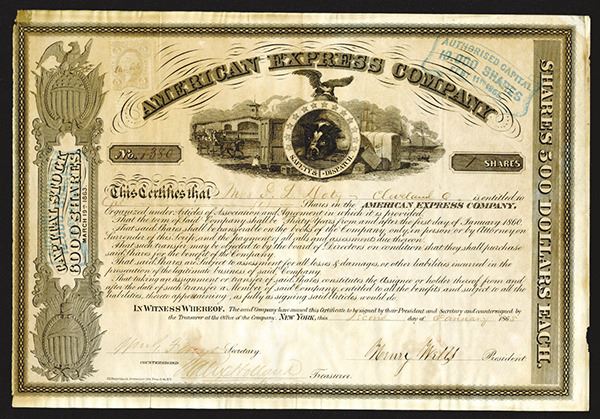 AMERICAN EXPRESS COMPANY
AUTHORISED CAPITAL
10,000 SHARES
SAFETY & DISPATCH
No. 1386
1 SHARES
This Certifies that Mrs E. L. Cleveland O is entitled to
Shares in the AMERICAN EXPRESS COMPANY,
Organized under Articles of Association and Agreement in which it is provided:
That the term of the Company shall be Thirty Years from and after the first day of January 1860.
That said Shares shall be transferable on the books of the Company, only in person or by Attorney on
surrender of this Certificate and the payment of all calls and assessments due thereon.
That such transfer may be objected to by the board of Directors on condition that they shall purchase
said Shares for the benefit of the Company.
That said Shares are subject to assessment for all losses & damages, or other liabilities incurred in the
prosecution of the legitimate business of said Company.
That taking an assignment or transfer of said Shares constitutes the Assignee or holder thereof from and
after the date of such transfer a Member of said Company, entitled to all the benefits and subject to all the
liabilities, thereto appertaining, as fully as signing said Articles would do.
IN WITNESS WHEREOF, The said Company have caused this Certificate to be signed by their President and Secretary and countersigned by
the Treasurer at the Office of the Company. NEW YORK, this Second day of January 1865
Secretary.
Henry Wells President
COUNTERSIGNED
Holland Treasurer.
CAPITAL STOCK
6000 SHARES
MARCH 19TH 1863
SHARES 500 DOLLARS EACH.